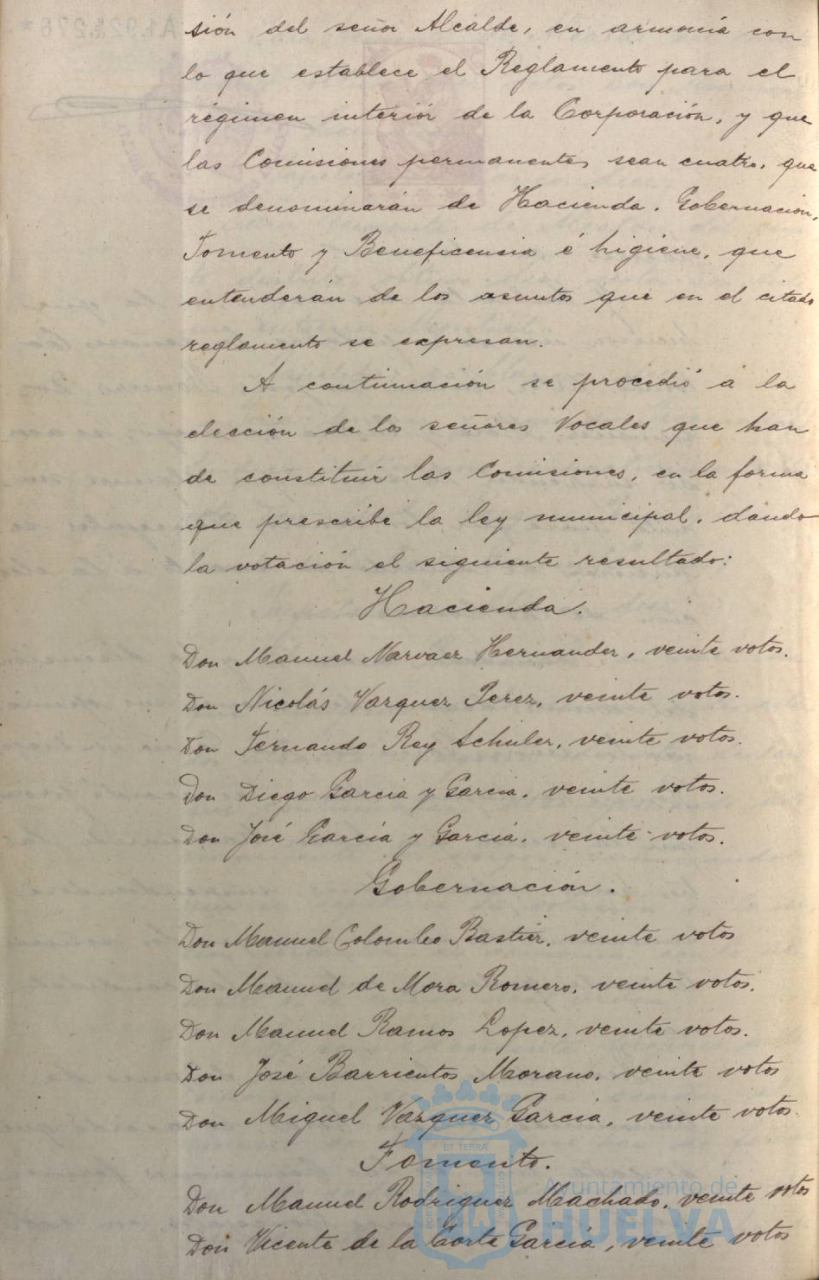 sión del señor Alcalde, en armonía con
lo que establece el Reglamento para el
régimen interior de la Corporación, y que
las Comisiones permanentes sean cuatro, que
se denominarán de Hacienda, Gobernación,
Fomento y Beneficensia é higiene, que
entenderán de los asuntos que en el citado
reglamento se expresan.
A continuación se procedió á la
elección de los señores Vocales que han
de constituir las Comisiones, en la forma
que prescribe la ley municipal, dando
la votación el siguiente resultado:
Hacienda.
Don Manuel Narvaez Hernandez, veinte votos.
Don Nicolás Vazquez Perez, veinte votos.
Don Fernando Rey Schuler, veinte votos.
Don Diego Garcia y Garcia, veinte votos.
Don José Garcia y Garcia, veinte votos.
Gobernación.
Don Manuel Colombo Bastier, veinte votos
Don Manuel de Mora Romero, veinte votos.
Don Manuel Ramos Lopez, veinte votos.
Don José Barrientos Morano, veinte votos
Don Miguel Vazquez Garcia, veinte votos.
Fomento.
Don Manuel Rodriguez Machado, veinte votos
Don Vicente de la Corte Garcia, veinte votos
Ayuntamiento de
HUELVA